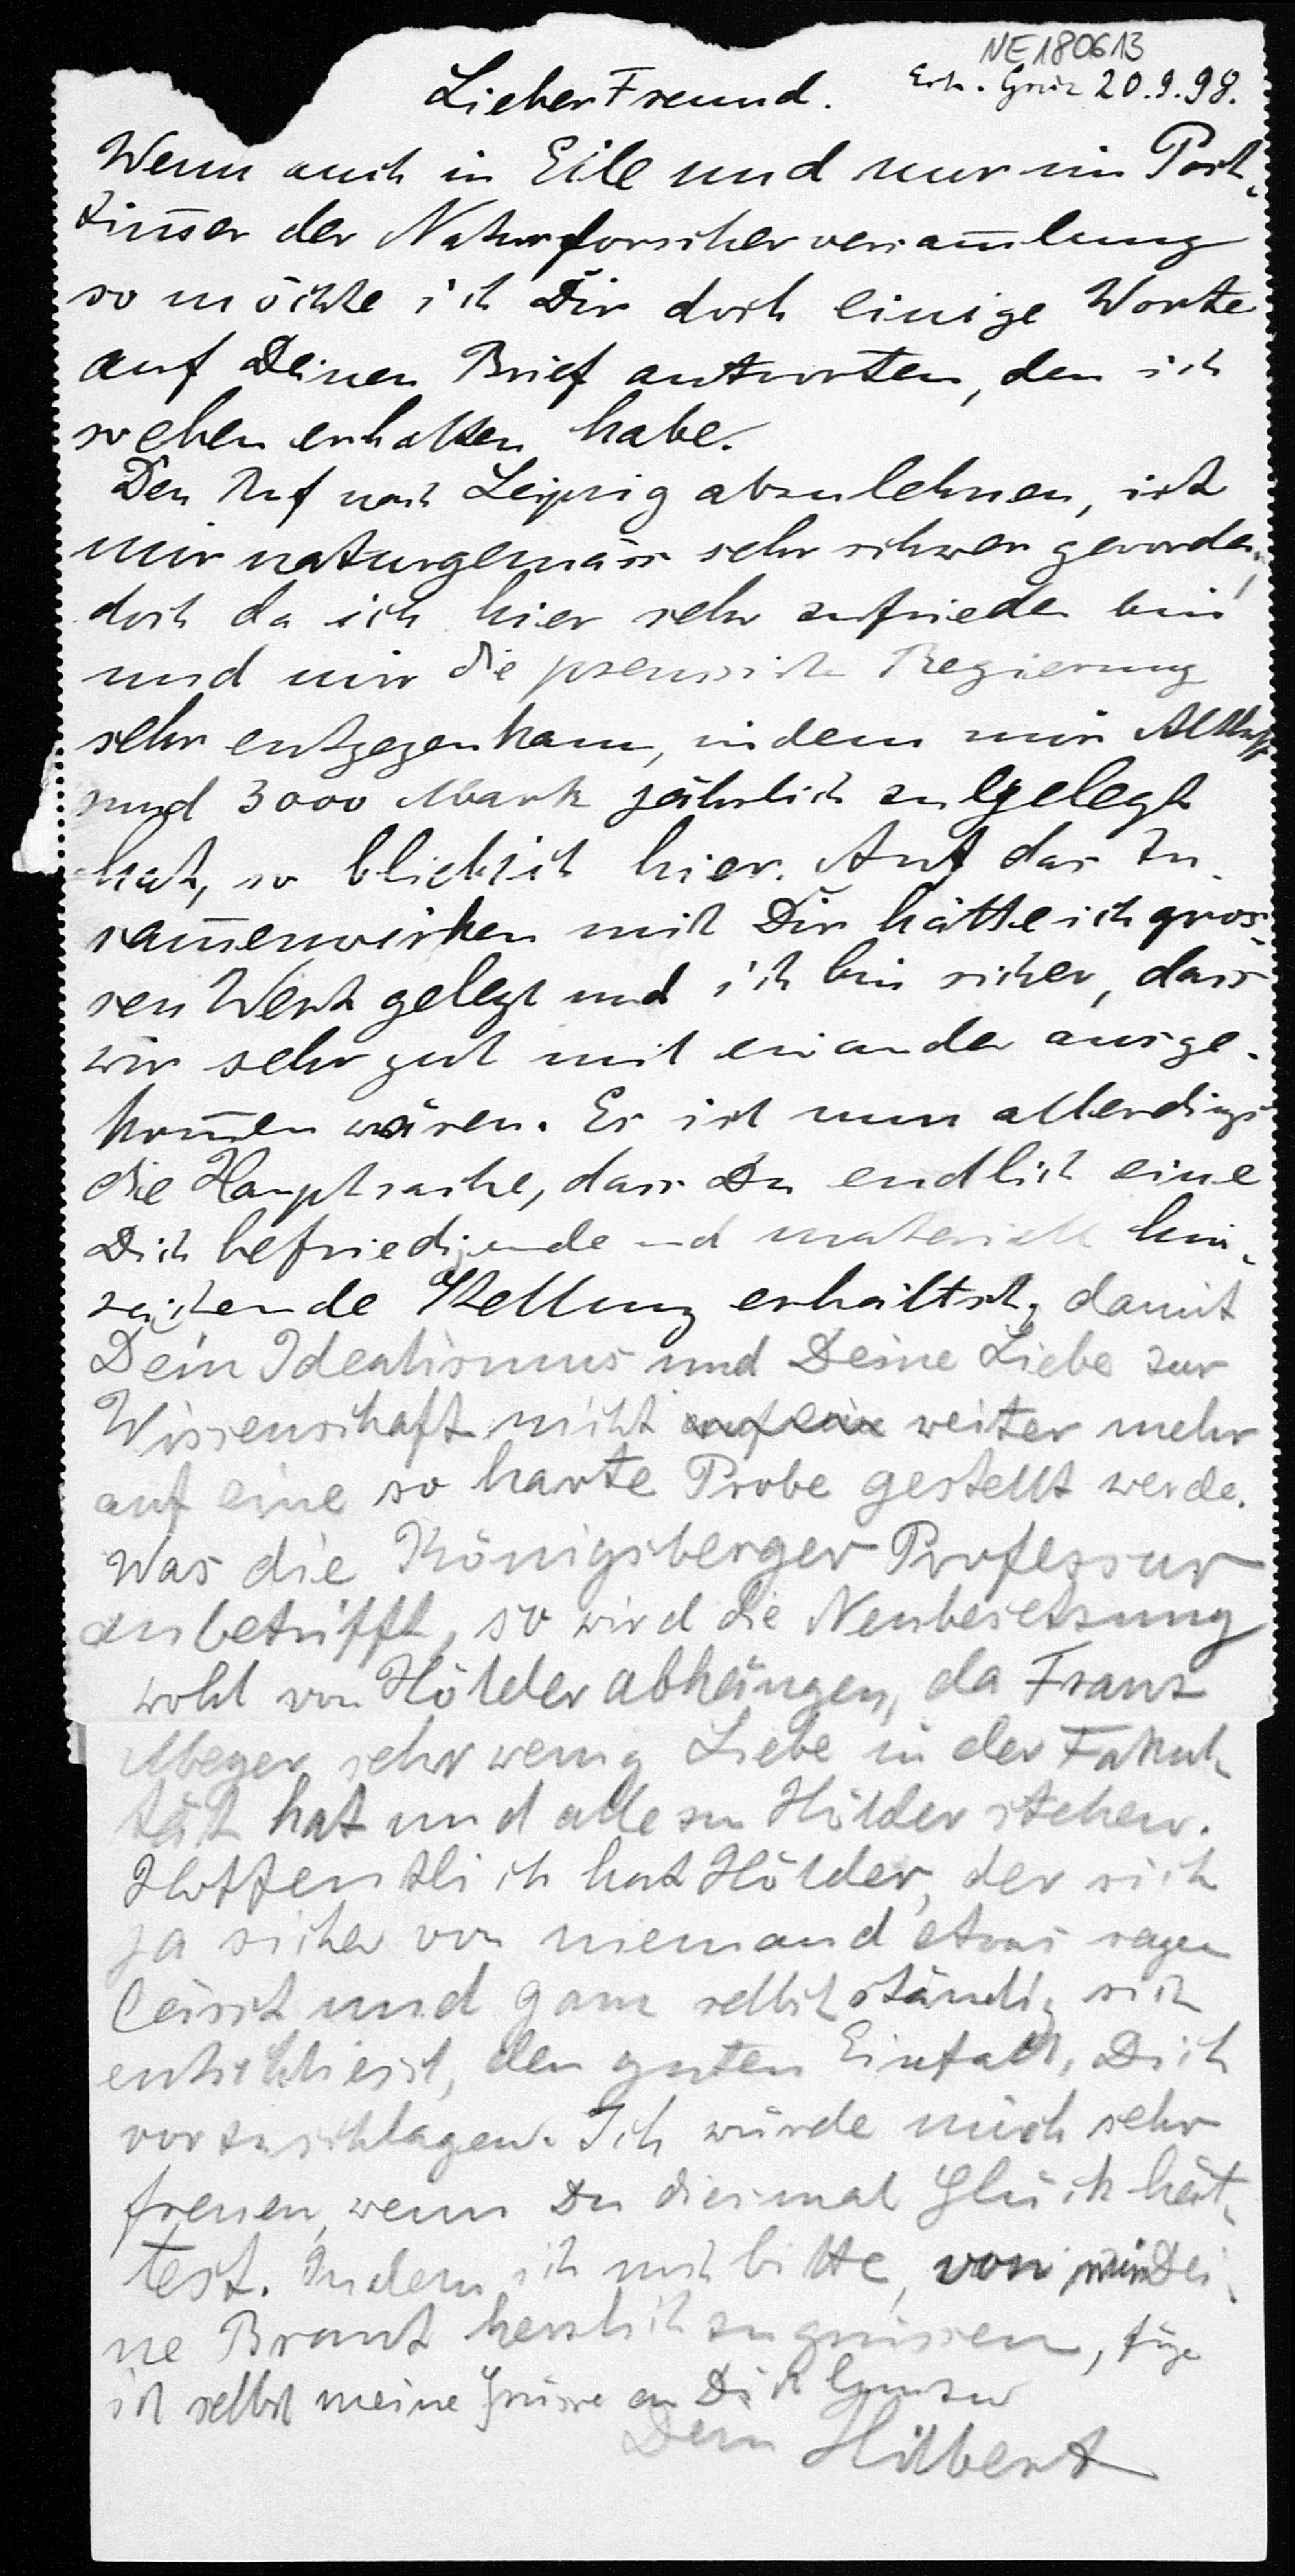 NE180613
Lieber Freund. Erh. Graz 20.9.98.
Wenn auch in Eile und nur im Post-
zim̅er der Naturforscherversam̅lung
so möchte ich Dir doch einige Worte
auf Deinen Brief antworten, den ich
soeben erhalten habe.
Den Ruf nach Leipzig abzulehnen, ist
mir naturgemäss sehr schwer geworden,
doch da ich hier sehr zufrieden bin
und mir die preussische Regierung
sehr entgegenkam, indem mir Althoff
rund 3000 Mark jährlich zugelegt
hat, so blieb ich hier. Auf das Zu-
sam̅enwirken mit Dir hätte ich gros-
sen Wert gelegt und ich bin sicher, dass
wir sehr gut mit einander ausge-
kom̅en wären. Es ist nun allerdings
die Hauptsache, dass Du endlich eine
Dich befriedigende und materiell hin-
reichende Stellung erhältst, damit
Dein Idealismus und Deine Liebe zur
Wissenschaft nicht auf eine weiter mehr
auf eine so harte Probe gestellt werde.
Was die Königsberger Professur
anbetrifft, so wird die Neubesetzung
wohl von Hölder abhängen, da Franz
Meyer sehr wenig Liebe in der Fakul-
tät hat und alle zu Hölder stehen.
Hoffentlich hat Hölder, der sich
ja sicher von niemand etwas sagen
lässt und ganz selbstständig sich
entschliesst, den guten Einfall, Dich
vorzuschlagen. Ich würde mich sehr
freuen, wenn Du diesmal Glück hät-
test. Indem ich mich bitte, von mir Dei-
ne Braut herzlich zu grüssen, füge
ich selbst meine Grüsse an Dich hinzu
Dein Hilbert